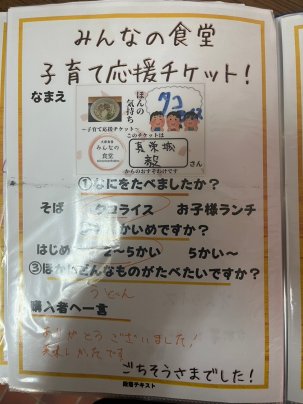 みんなの食堂
子育て応援チケット!
なまえ
ほんの気持ち
タコライス
~子育て応援チケット~
このチケットは
みんなの食堂
真栄城
毅
さん
からのおすそわけです
①なにをたべましたか?
そば タコライス お子様ランチ
かいめですか?
はじめ 2~5かい 5かい~
③ほかにどんなものがたべたいですか?
うどん
購入者へ一言
ありがとうございました!
美味しかたです
ごちそうさまでした!
段落テキスト